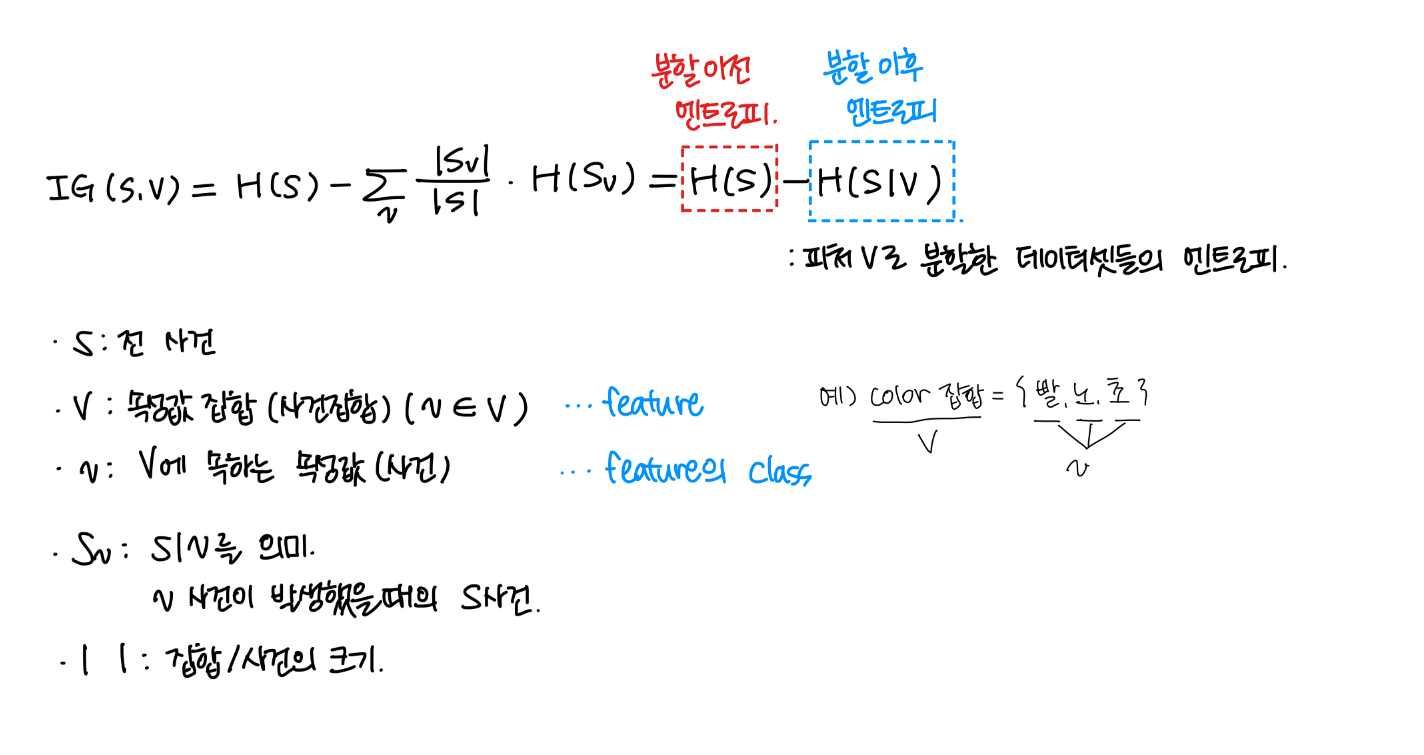 분할 이전
엔트로피.
분할 이후
엔트로피
IG(S.V) = H(S) - ∑v |Sv|/|S| · H(Sv) = H(S) - H(S|V)
: 피처 V로 분할한 데이터셋들의 엔트로피.
· S : 전 사건
· V : 속성값 집합 (사건집합) (v ∈ V) ··· feature
예) color 집합 = { 빨, 노, 초 }
V
v
· v : V에 속하는 속성값 (사건) ··· feature의 class
· Sv : S|v를 의미.
v 사건이 발생했을때의 S사건.
· | | : 집합/사건의 크기.